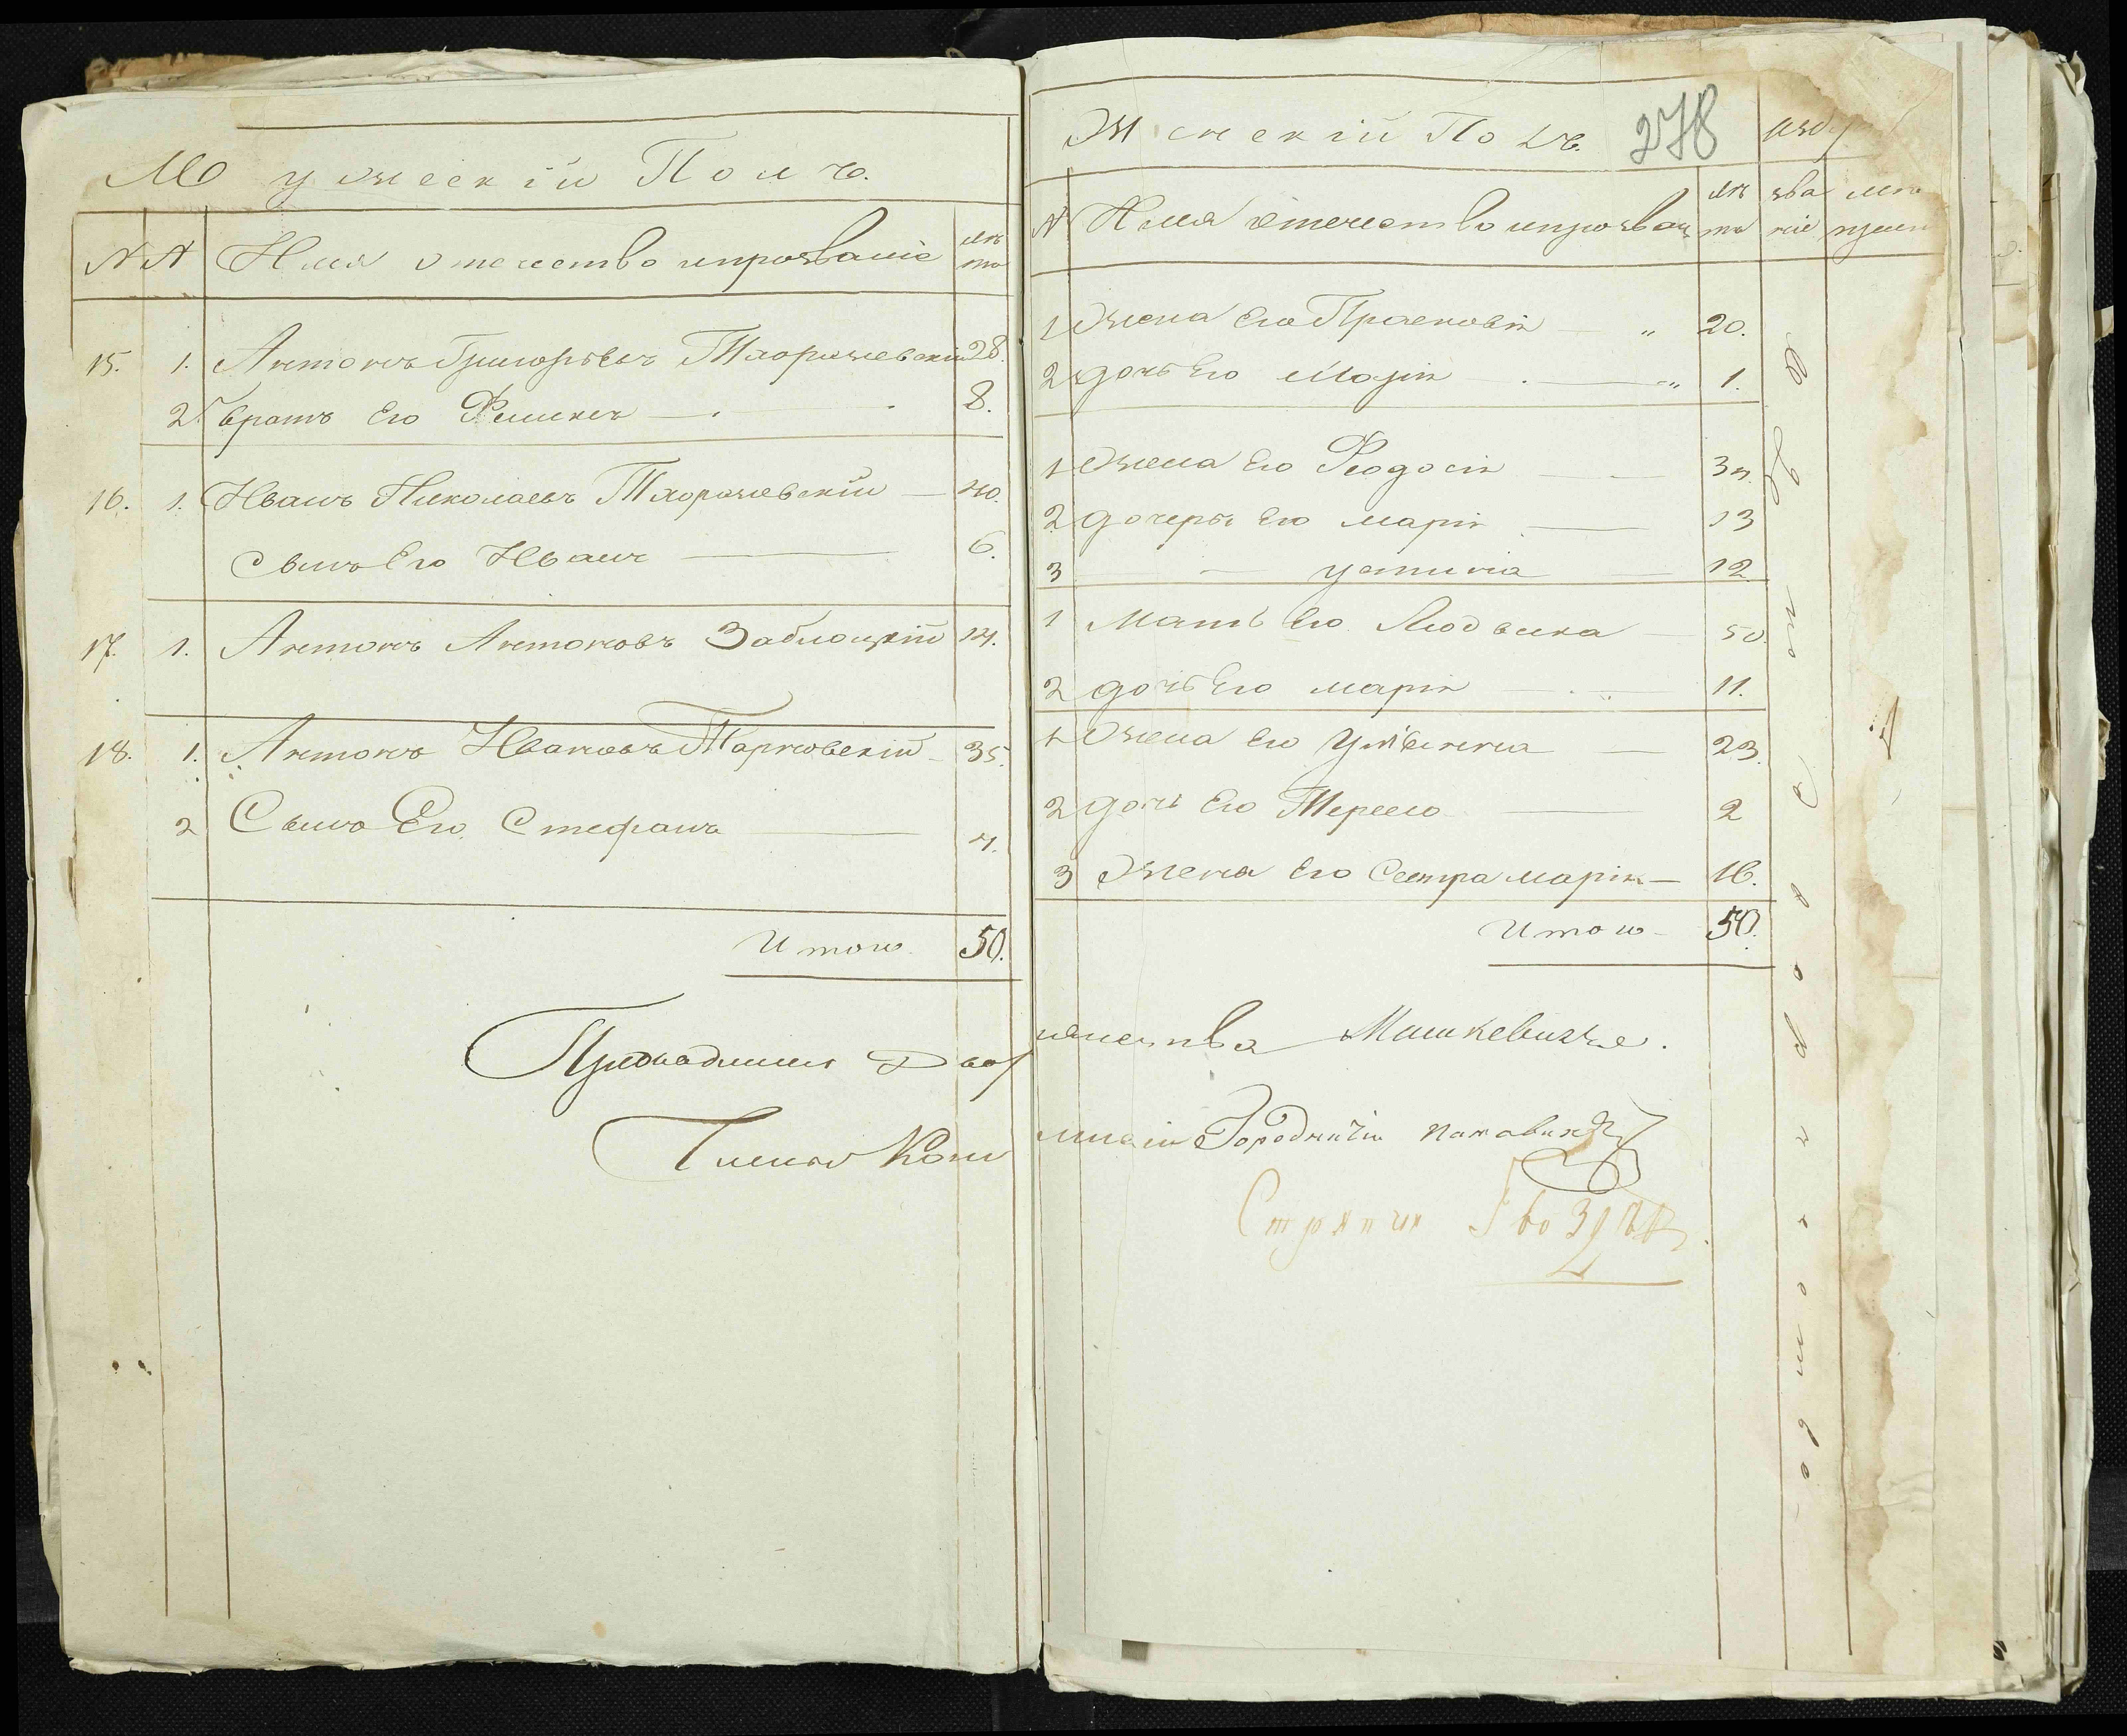 Мужескій Полъ.
№№ Имя отечество ипрозваніе лѣта
15. 1. Антонъ Григорьевъ 28.
2. братъ Его Феликсъ 8.
16. 1. Иванъ Николаевъ 40.
сынъ Его Иванъ 6.
17. 1. Антонъ Антоновъ Заблоцкій 14.
18. 1. Антонъ Ивановъ Тарновскій 35.
2 Сынъ Его Стефанъ 4.
Итого 50.
Женскій Полъ. 278
№ Имя отечество ипрозван лѣта зва ніе
1 Жена Его Прасковія 20.
2 дочь Его Марія 1.
1 Жена Его Феодосія 34.
2 дочеры Его марія 13
3 устинія 12
1 Мать Его Людвика 50.
2 дочь Его марія 11.
1 Жена Его 23.
2 дочь Его Тереса 2
3 Жена Его Сестра марія 16.
Итого 50.
Предводитель Дворянства Машкевичъ.
Городничій
Стряпчій